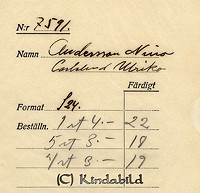 N:r 7591.
Namn Andersson Nina
Carlslund Ulrika
Färdigt
Format S24.
Beställn. 1 st 4.- 22
5 st 3.- 18
4 st 3.- 19
(C) Kindabild